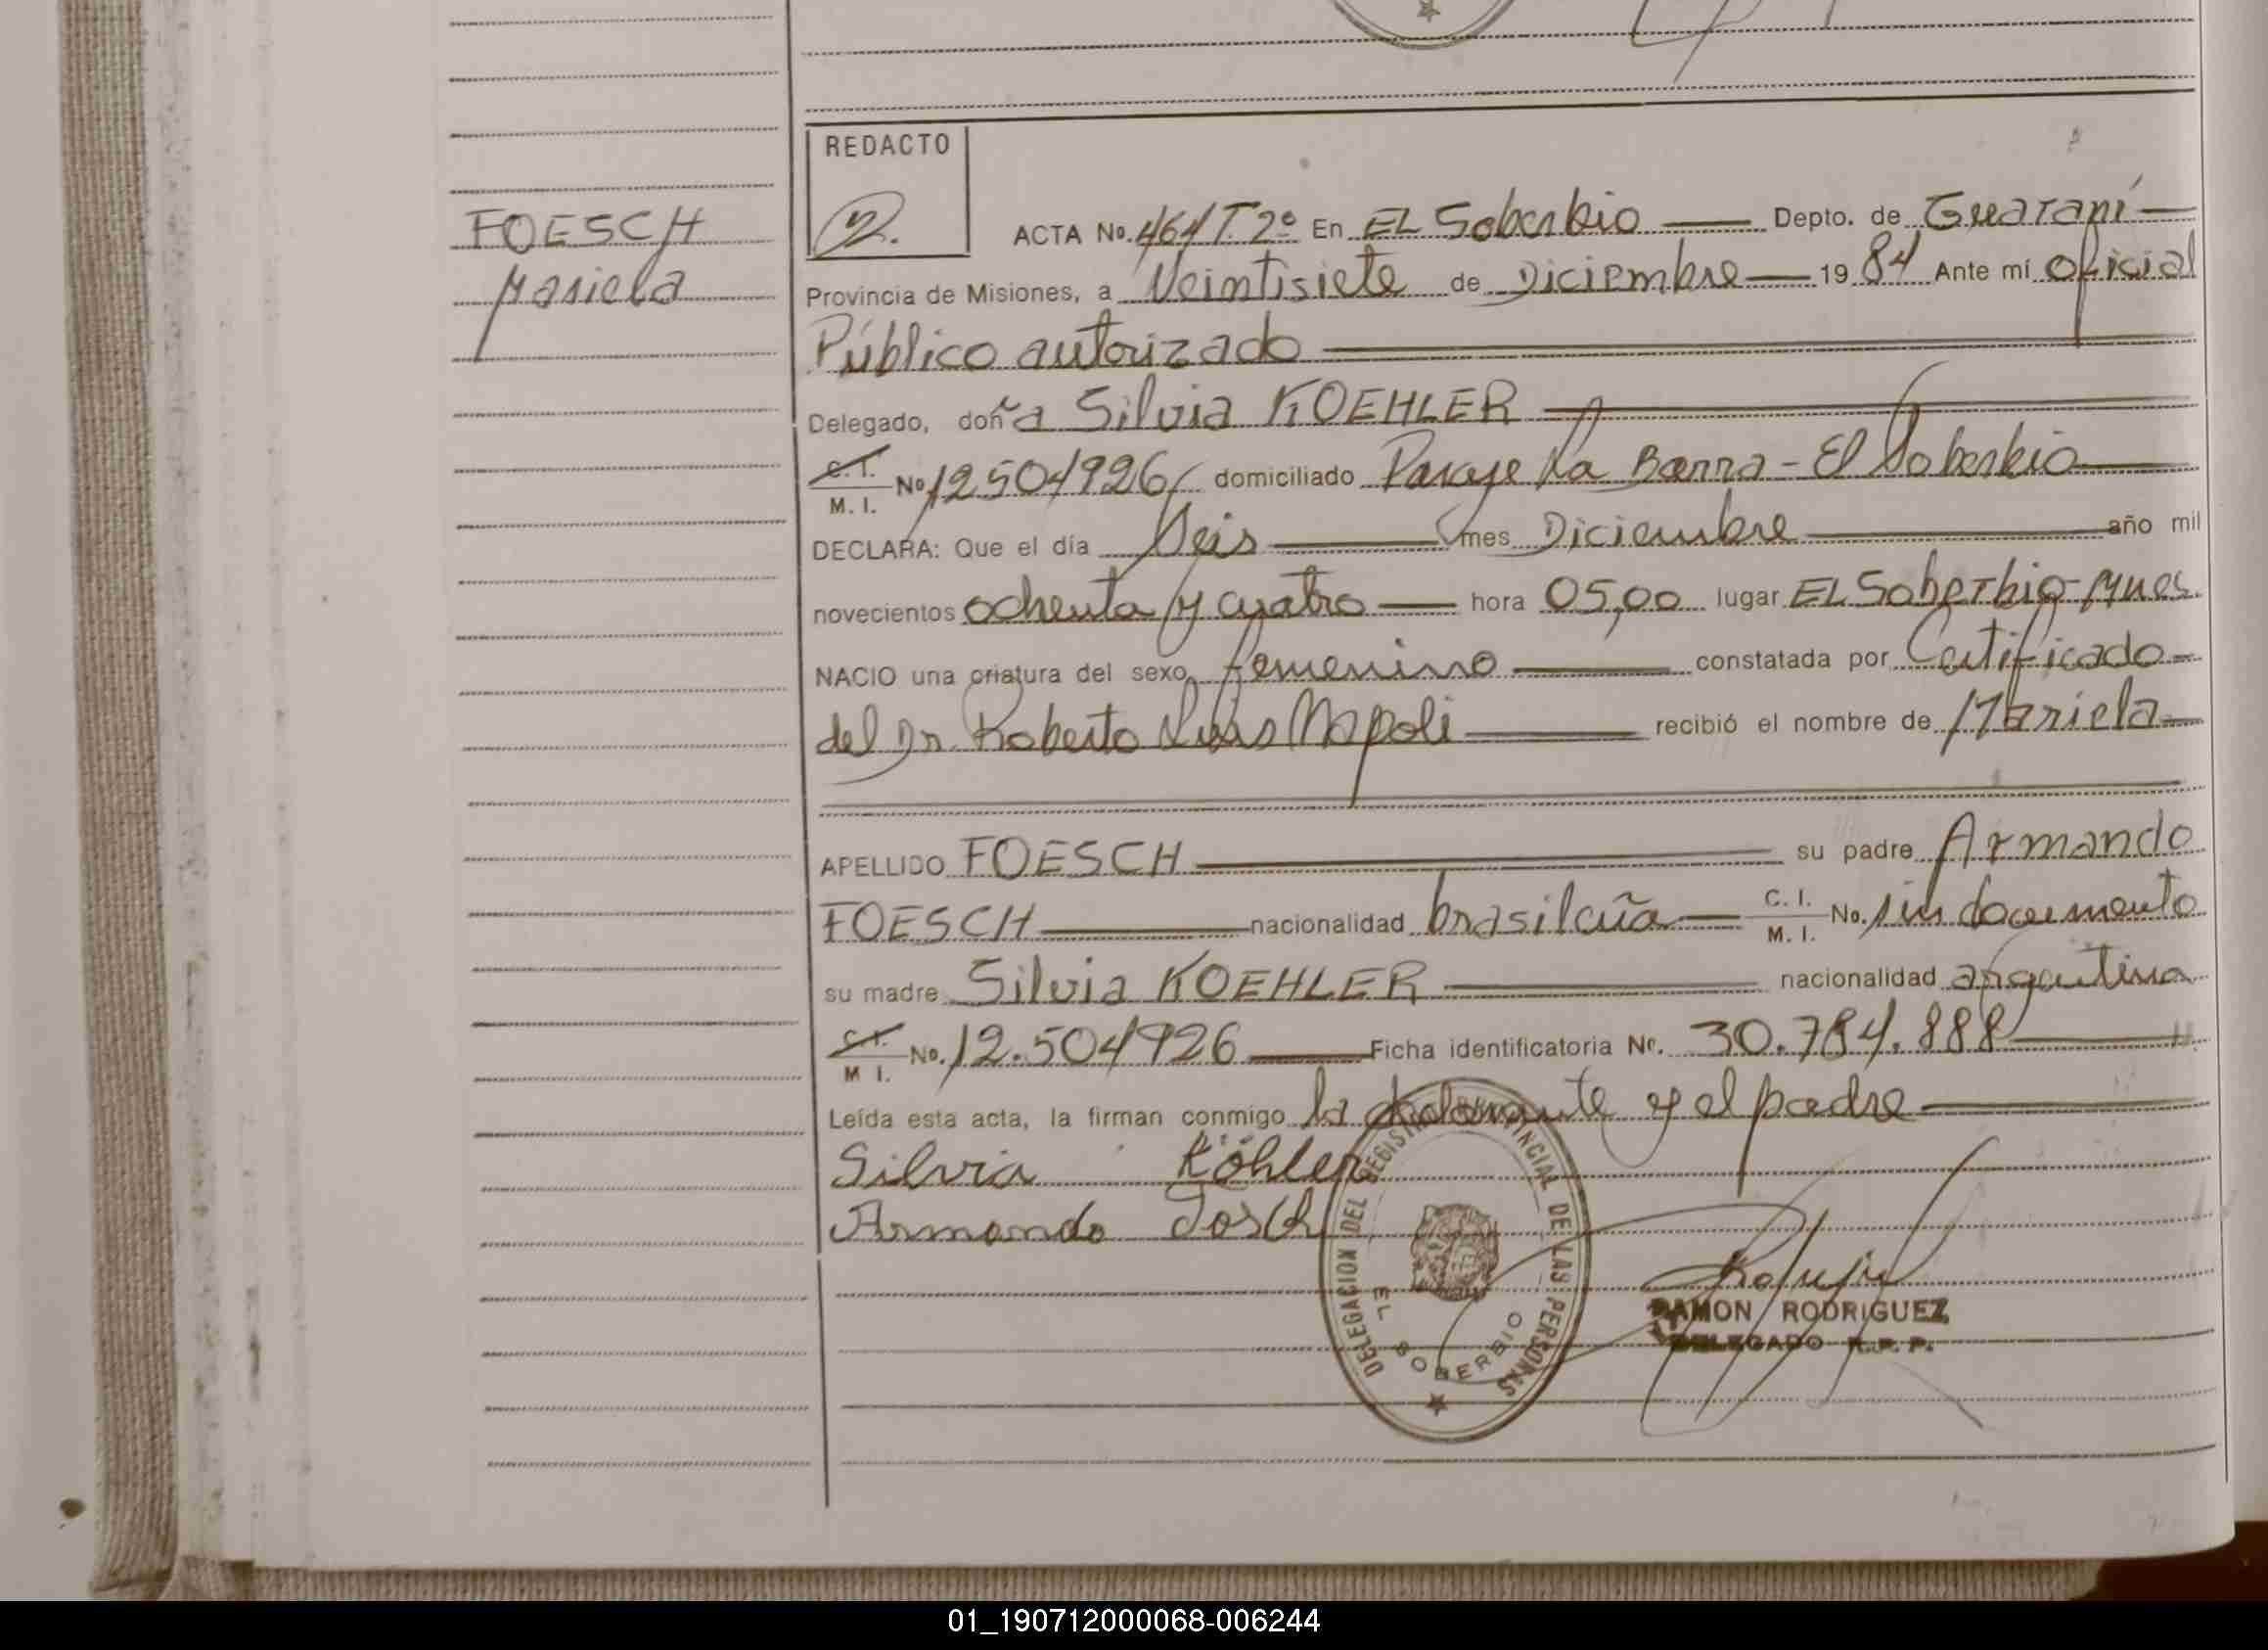 REDACTO
FOESCH
Mariela
ACTA No. 464 T. 2º En EL Soberbio Depto. de Guaraní
Provincia de Misiones, a Veintisiete de Diciembre 1984 Ante mí oficial
Público autorizado
Delegado, doña Silvia KOEHLER
C. I. M. I. No 12504926 domiciliado Paraje La Barra - El Soberbio
DECLARA: Que el día Seis mes Diciembre año mil
novecientos ochenta y cuatro hora 05,00 lugar EL Soberbio - Mnes.
NACIO una criatura del sexo femenino constatada por Certificado
del Dr. Roberto Napoli recibió el nombre de Mariela
APELLIDO FOESCH su padre Armando
FOESCH nacionalidad brasileña C. I. M. I. No. sin documento
su madre Silvia KOEHLER nacionalidad argentina
C. I. M I. No. 12.504926 Ficha identificatoria Nº. 30.784.888
Leída esta acta, la firman conmigo la declarante y el padre
Silvia Köhler
Armando
DELEGACION DEL REGISTRO PROVINCIAL DE LAS PERSONAS
EL SOBERBIO
RAMON RODRIGUEZ
DELEGADO R.P.P.
01_190712000068-006244